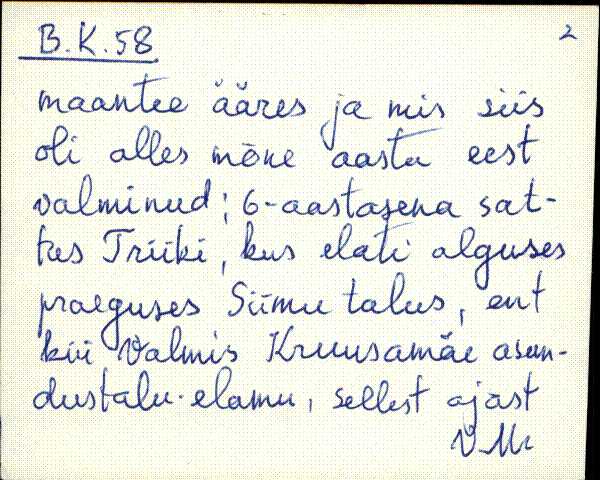 B.K.58 2
maantee ääres ja mis siis
oli alles mõne aasta eest
valminud; 6-aastasena sat-
tus Triiki, kus elati alguses
praeguses Siimu talus, ent
kui valmis Kruusamäe asun-
dustalu-elamu, sellest ajast